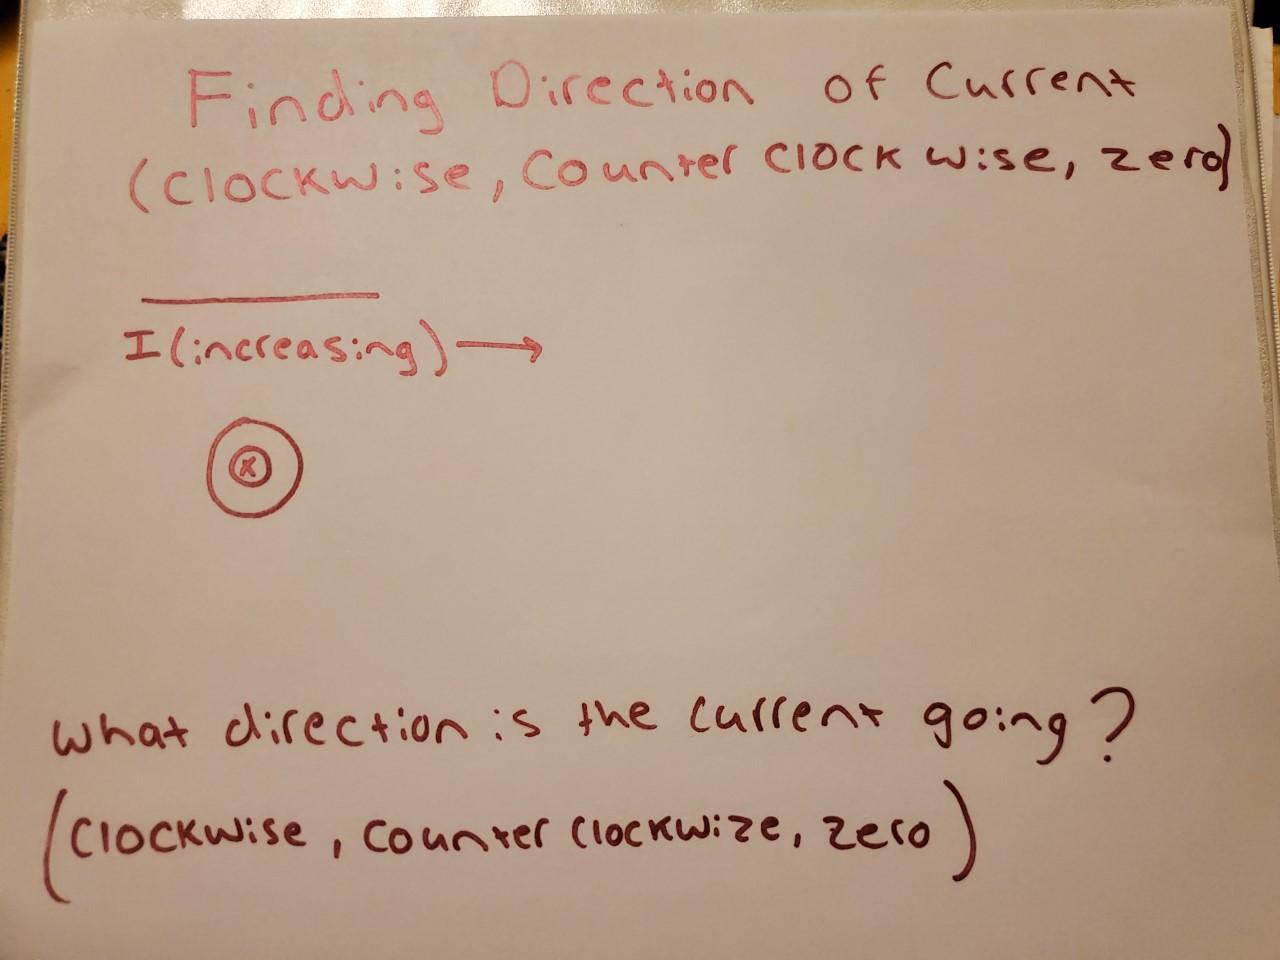 Finding Direction of Current
(Clockwise, Counter Clock wise, zero)
I (increasing) →
x
What direction is the current going?
(Clockwise, Counter Clockwize, zero)